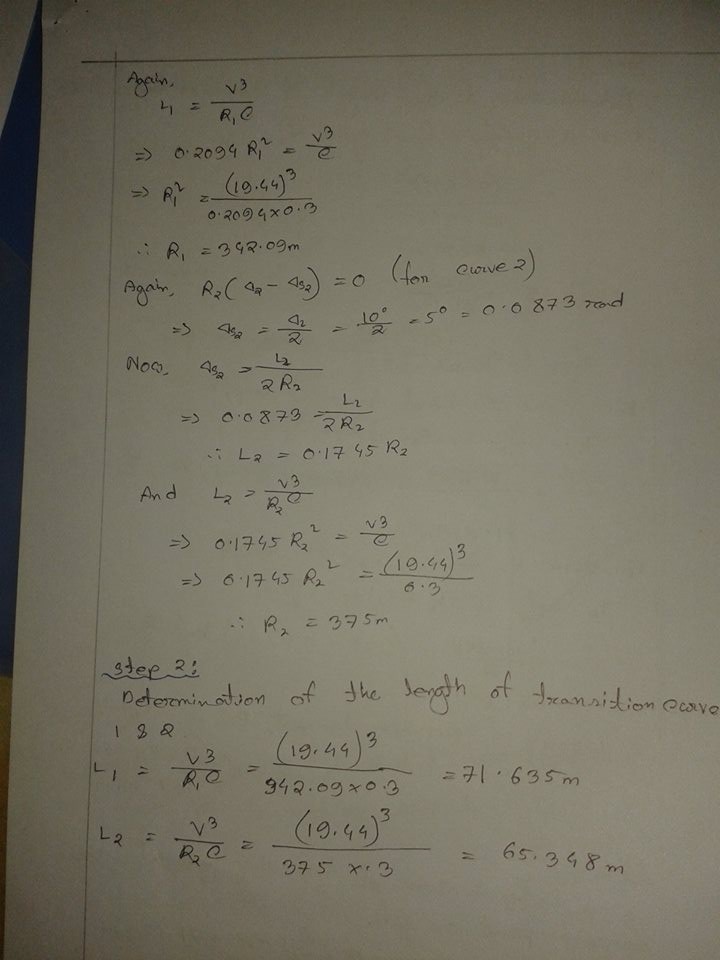 Again,
L₁ = V3 / R₁C
⇒ 0.2094 R₁² = V3 / C
⇒ R₁² = (19.44)³ / 0.2094×0.3
∴ R₁ = 342.09m
Again, R₂(Δ₂ - Δs₂) = 0 (for curve 2)
⇒ Δs₂ = Δ₂/2 = 10°/2 = 5° = 0.0873 rad
Now, Δs₂ = L₂ / 2R₂
⇒ 0.0873 = L₂ / 2R₂
∴ L₂ = 0.1745 R₂
And L₂ = V3 / R₂C
⇒ 0.1745 R₂² = V3 / C
⇒ 0.1745 R₂² = (19.44)³ / 0.3
∴ R₂ = 375m
Step 2:
Determination of the length of transition curve
1 & 2
L₁ = V3 / R₁C = (19.44)³ / 342.09×0.3 = 71.635m
L₂ = V3 / R₂C = (19.44)³ / 375 × .3 = 65.348m